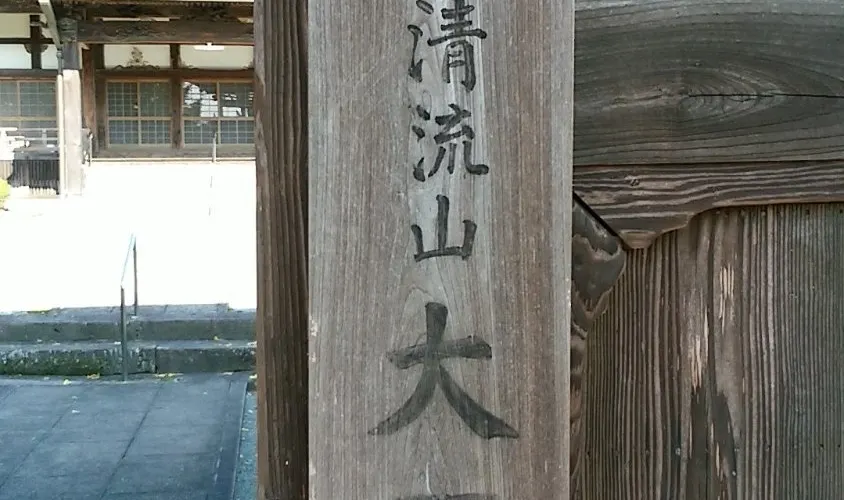 清流山大